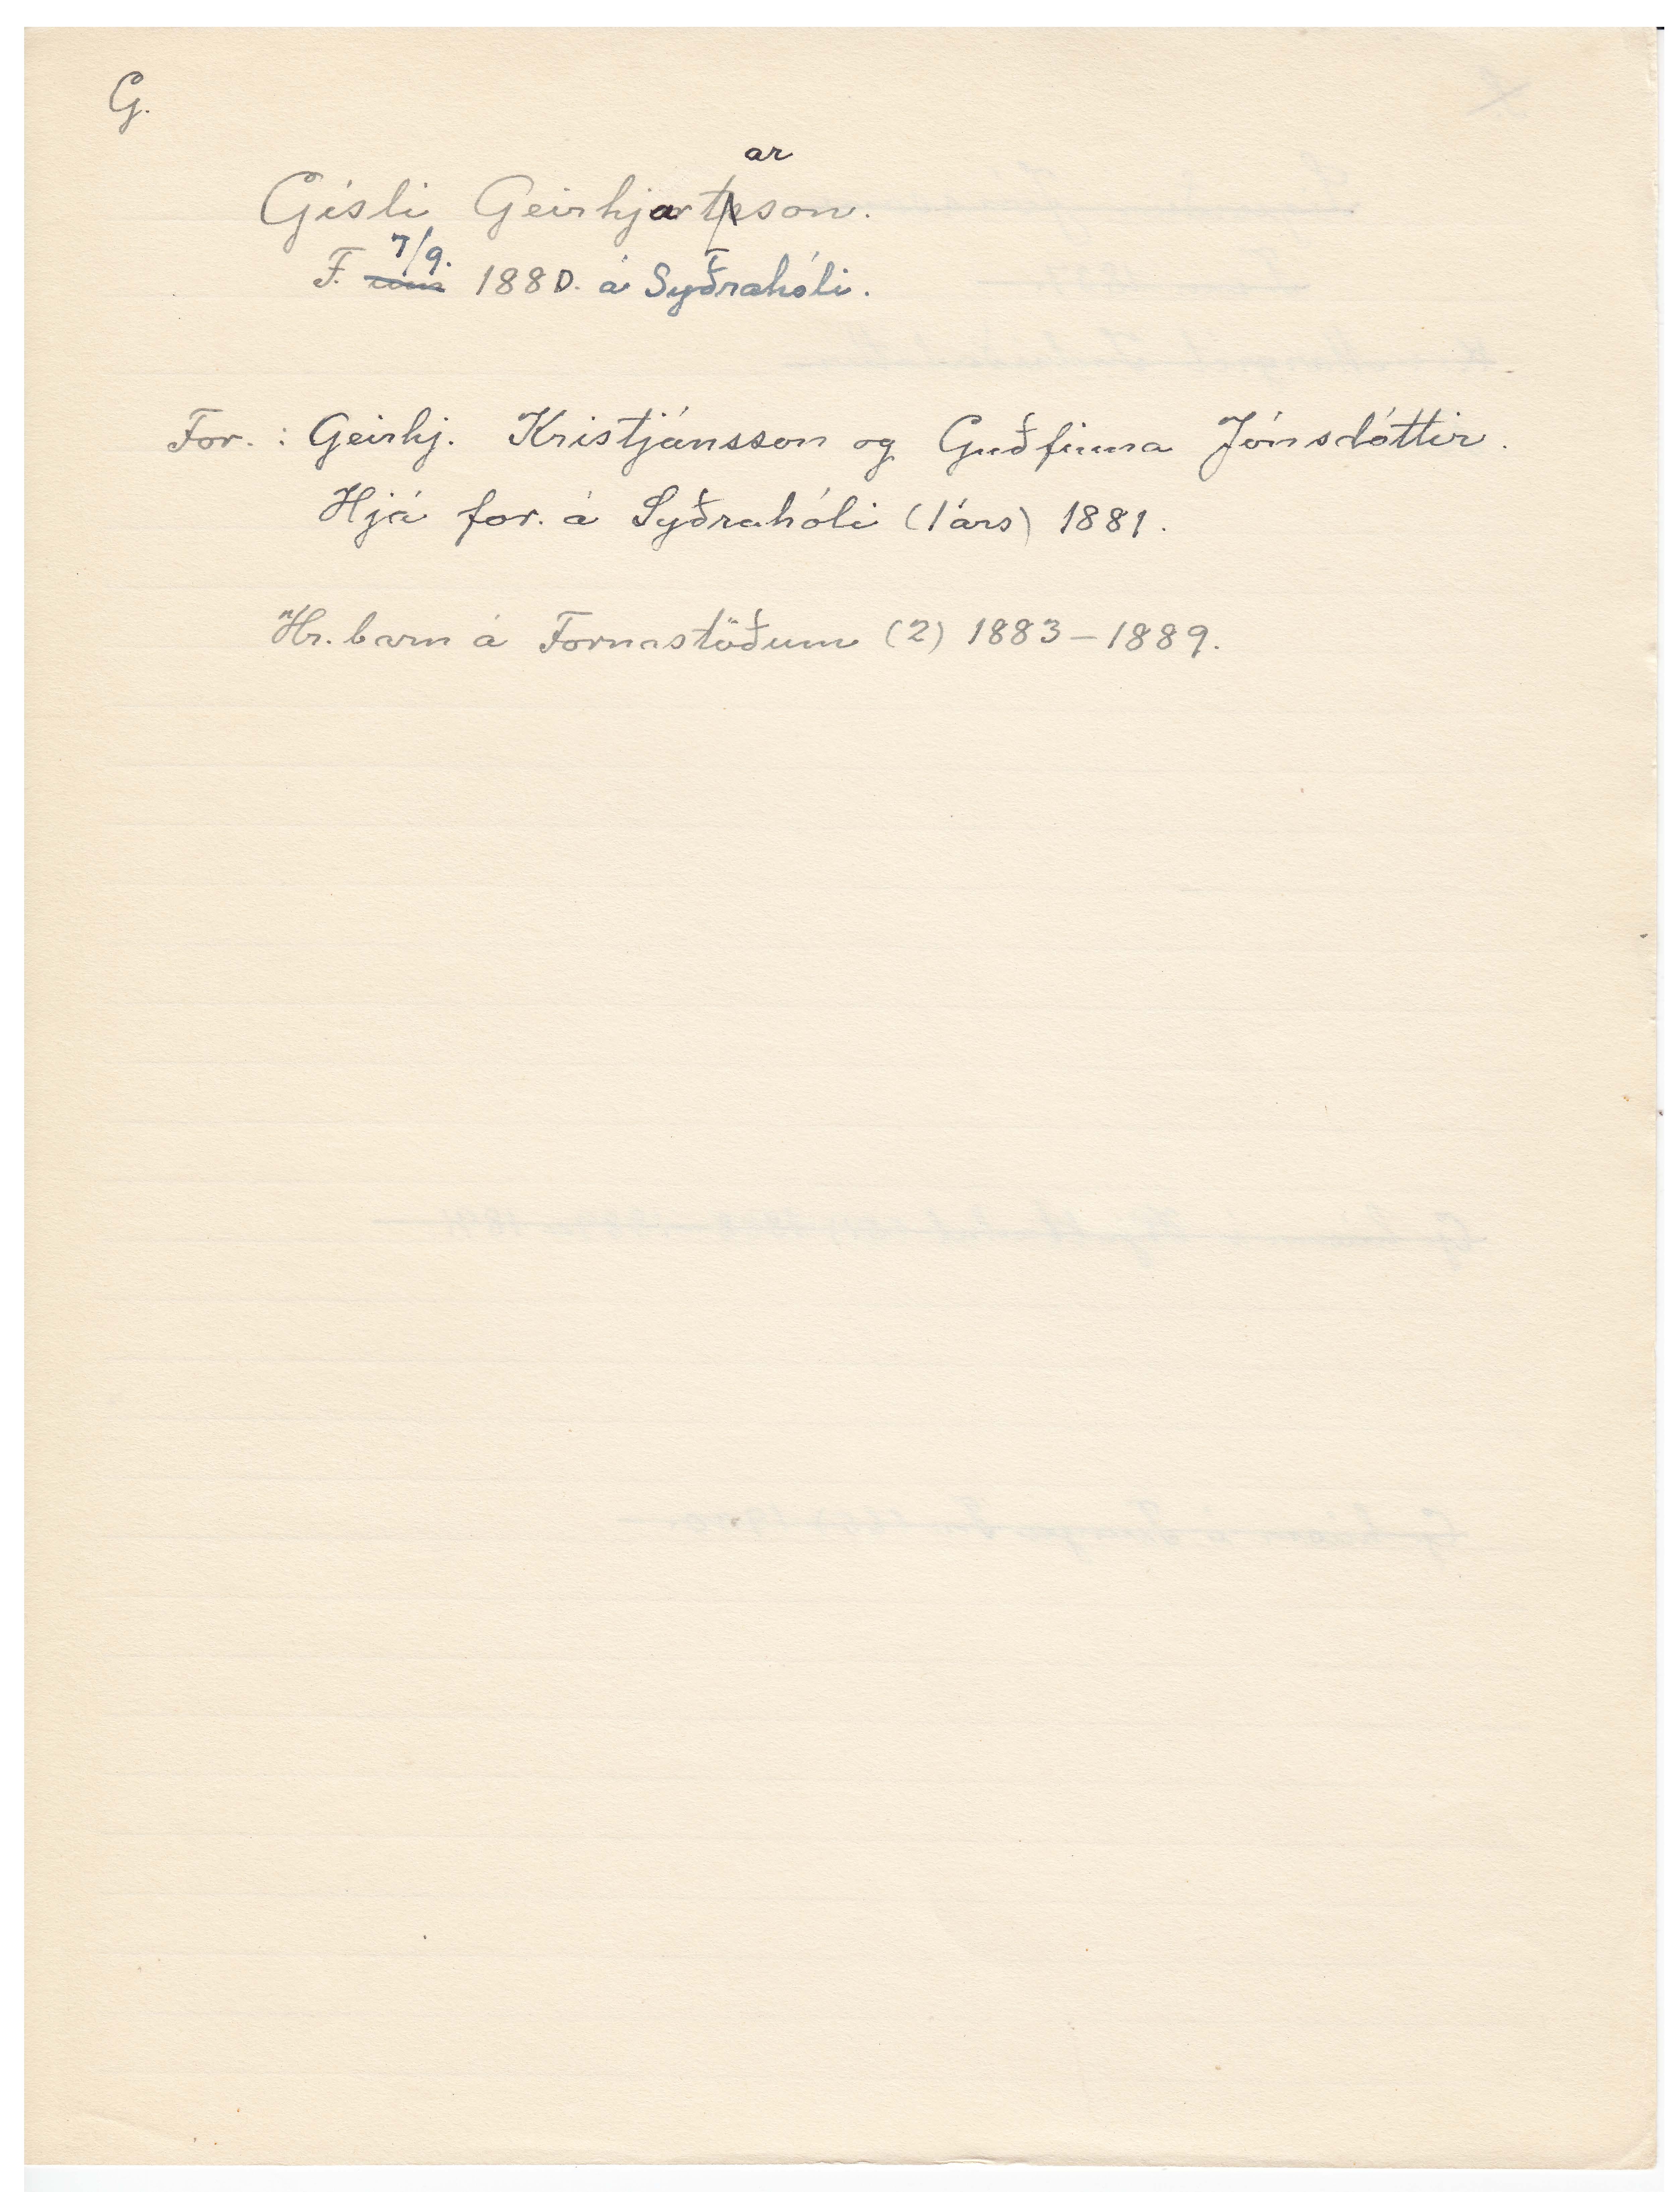 G.
Gísli Geirhjartarson.
F. 7/9. 1880. á Syðrahóli.
For.: Geirhj. Kristjánsson og Guðfinna Jónsdóttir.
Hjá for. á Syðrahóli (1 árs) 1881.
Hr. barn á Fornastöðum (2) 1883–1889.